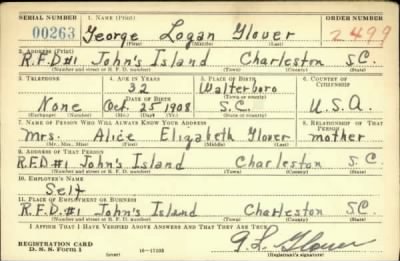 SERIAL NUMBER 1. NAME (Print) ORDER NUMBER
00263 George Logan Glover 2499
(First) (Middle) (Last)
2. ADDRESS (Print)
R.F.D #1 John's Island Charleston S.C.
(Number and street or R. F. D. number) (Town) (County) (State)
3. TELEPHONE 4. AGE IN YEARS 5. PLACE OF BIRTH 6. COUNTRY OF CITIZENSHIP
32 Walterboro
DATE OF BIRTH (Town or county)
None Oct. 25 1908 S.C. U.S.A.
(Exchange) (Number) (Mo.) (Day) (Yr.) (State or country)
7. NAME OF PERSON WHO WILL ALWAYS KNOW YOUR ADDRESS 8. RELATIONSHIP OF THAT PERSON
Mrs. Alice Elizabeth Glover mother
(Mr., Mrs., Miss) (First) (Middle) (Last)
9. ADDRESS OF THAT PERSON
R.F.D #1 John's Island Charleston S.C.
(Number and street or R. F. D. number) (Town) (County) (State)
10. EMPLOYER'S NAME
Self
11. PLACE OF EMPLOYMENT OR BUSINESS
R.F.D. #1 John's Island Charleston S.C.
(Number and street or R. F. D. number) (Town) (County) (State)
I AFFIRM THAT I HAVE VERIFIED ABOVE ANSWERS AND THAT THEY ARE TRUE.
REGISTRATION CARD
D. S. S. Form 1 16-17105 G L Glover
(over) (Registrant's signature)